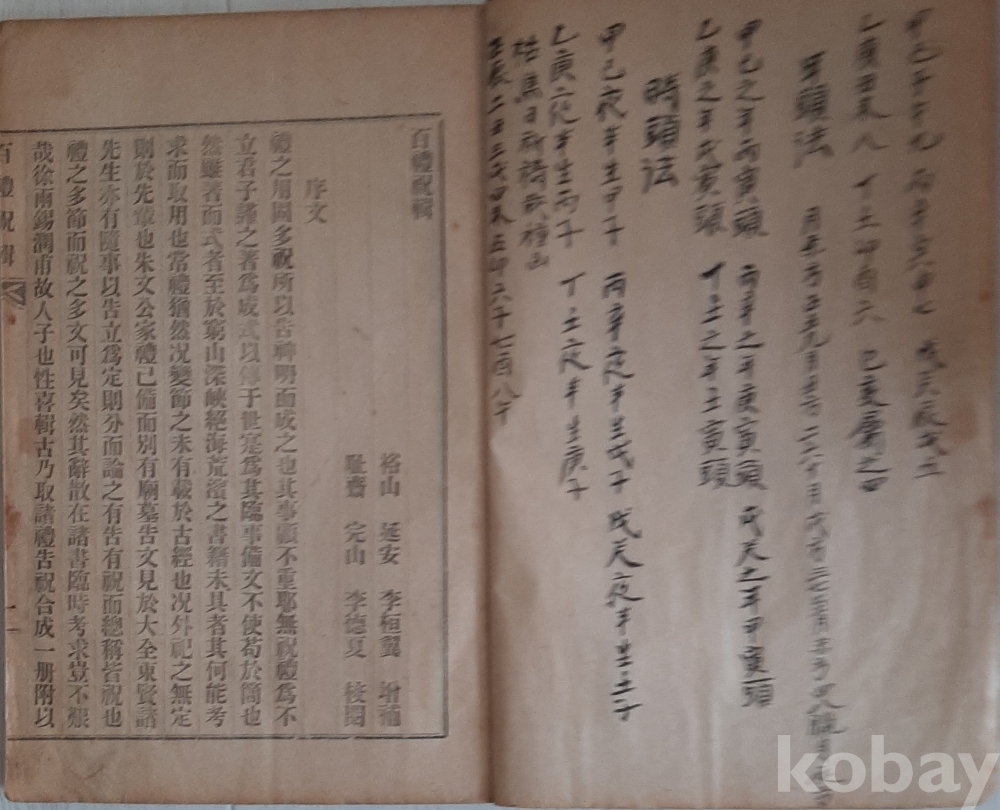 甲己子午九 丙辛寅申七 戊癸辰戌五
乙庚丑未八 丁壬卯酉六 巳亥屬之四
頭法
甲己之年丙寅頭 丙辛之年庚寅頭 戊癸之年甲寅頭
乙庚之年戊寅頭 丁壬之年壬寅頭
時頭法
甲己夜半生甲子 丙辛夜半生戊子 戊癸夜半生壬子
乙庚夜半生丙子 丁壬夜半生庚子
百禮祝輯
裕山 延安 李桓翼 增補
耻齋 完山 李德夏 校閱
序文
禮之用固多祝所以告神明而成之也其事顧不重耶無祝禮爲不
立君子謹之著爲成式以傳于世寔爲其臨事備文不使苟於簡也
然雖著而式者至於窮山深峽絕海荒濱之書籍未具者其何能考
求而取用也常禮猶然况變節之未有載於古經也况外祀之無定
則於先輩也朱文公家禮已備而別有廟墓告文見於大全東賢諸
先生亦有隨事以告立爲定則分而論之有告有祝而總稱皆祝也
禮之多節而祝之多文可見矣然其辭散在諸書臨時考求豈不艱
哉徐雨錫潤甫故人子也性喜輯古乃取諸禮告祝合成一册附以
百禮祝輯
一
kobay